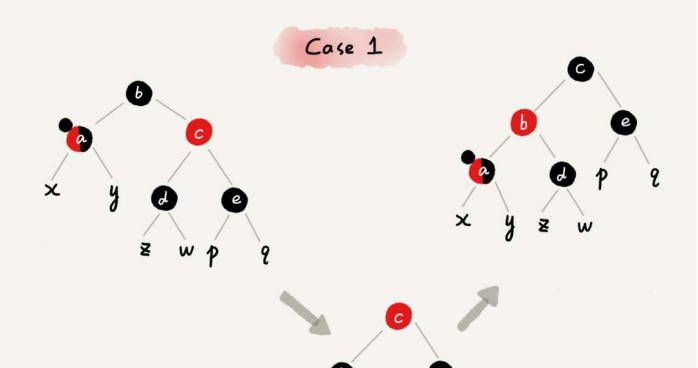 Case 1
b
a
c
x
y
d
e
z
w
p
q
c
b
e
a
d
p
q
x
y
z
w
c